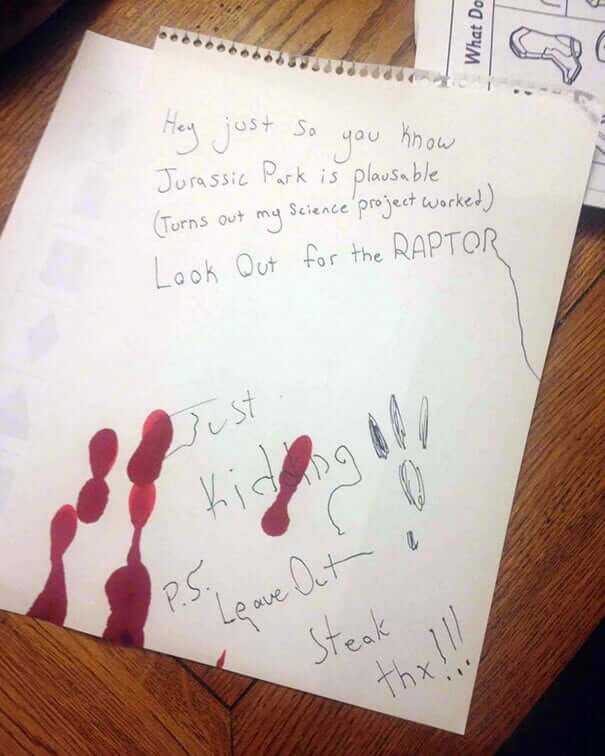 What Do
Hey just so you know
Jurassic Park is plausable
(Turns out my Science project worked)
Look Out for the RAPTOR
Just
Kidding !!!
P.S. Leave Out
Steak
thx!!!